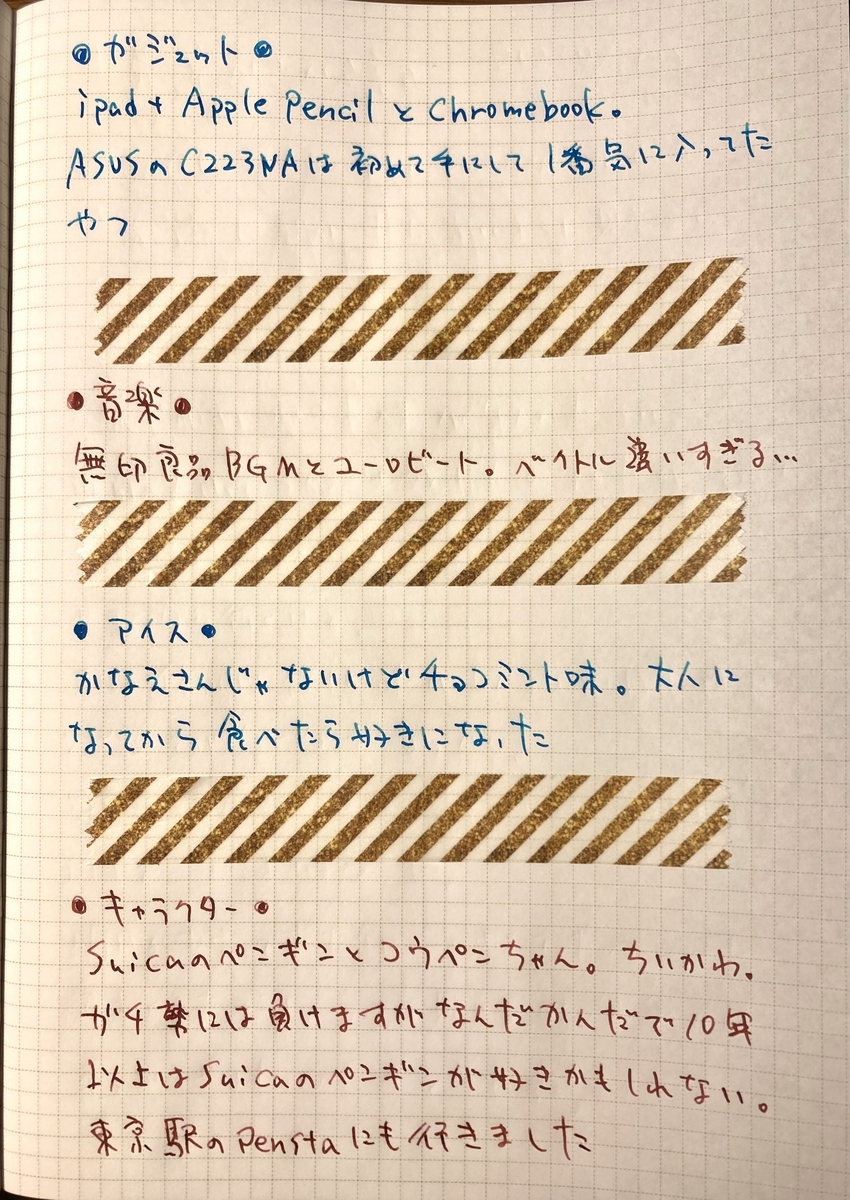 ●ガジェット●
ipad + Apple PencilとChromebook。
ASUSのC223NAは初めて手にして1番気に入ってた
やつ
●音楽●
無印良品BGMとユーロビート。ベクトル違いすぎる…
●アイス●
かなえさんじゃないけどチョコミント味。大人に
なってから食べたら好きになった
●キャラクター●
Suicaのペンギンとコウペンちゃん。ちいかわ。
ガチ勢には負けますがなんだかんだで10年
以上はSuicaのペンギンが好きかもしれない。
東京駅のPenstaにも行きました